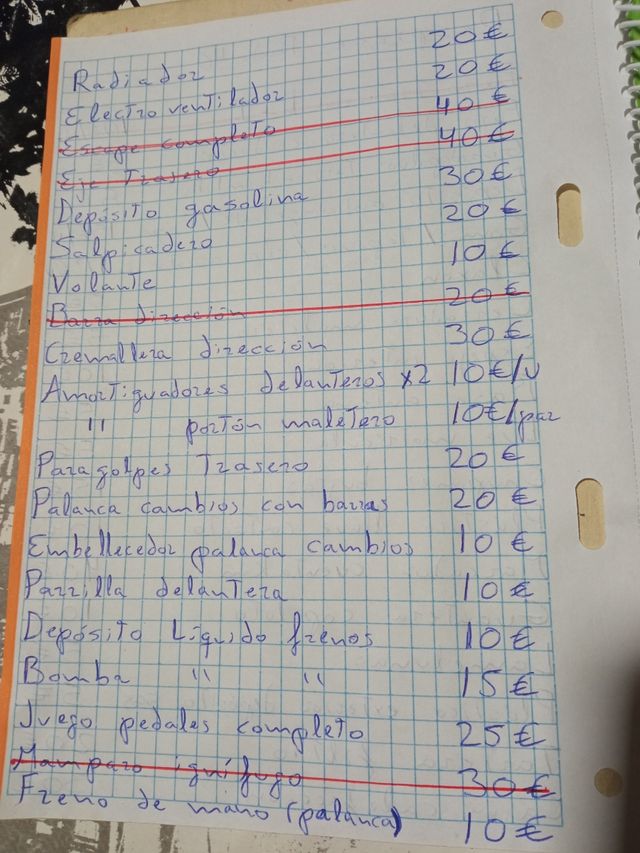 Radiador 20€
Electro ventilador 20€
Escape completo 40€
Eje Trasero 40€
Depósito gasolina 30€
Salpicadero 20€
Volante 10€
Barra dirección 20€
Cremallera dirección 30€
Amortiguadores delanteros x2 10€/u
" portón maletero 10€/par
Paragolpes Trasero 20€
Palanca cambios con barras 20€
Embellecedor palanca cambios 10€
Parrilla delantera 10€
Depósito Líquido frenos 10€
Bomba " " 15€
Juego pedales completo 25€
Mamparo ignífugo 30€
Freno de mano (palanca) 10€